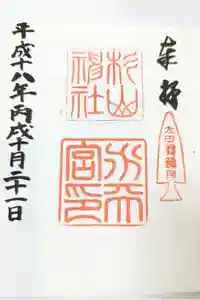 奉拝
太田
杉山
神社
宮印
平成十八年丙戌十月二十一日